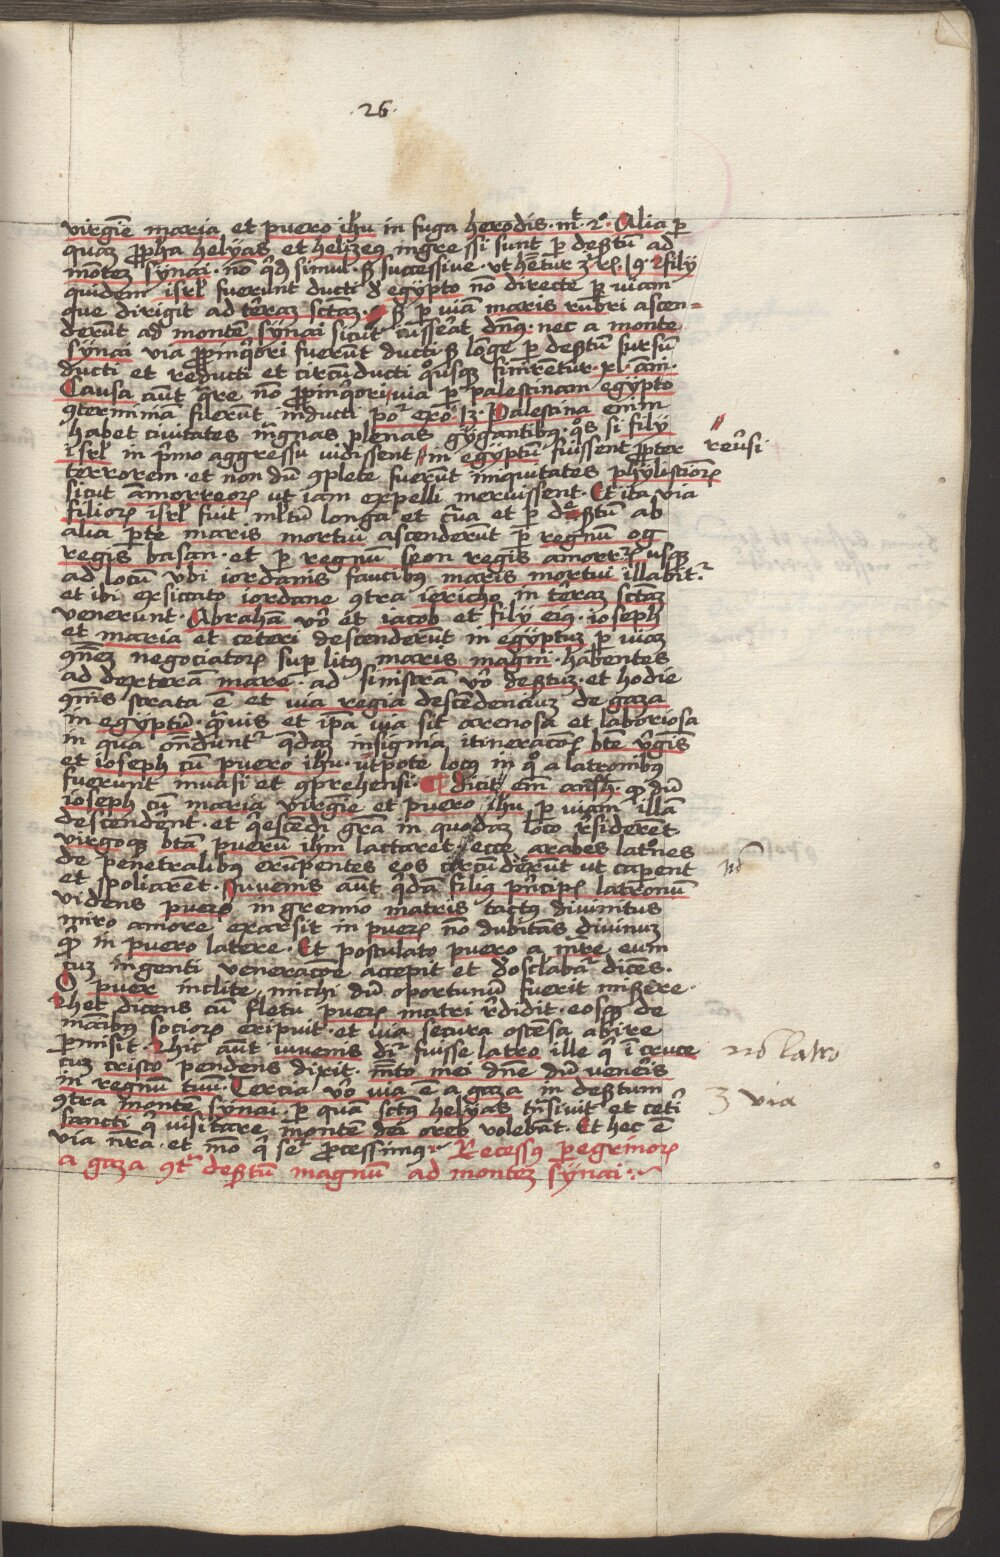 .26.
virgīe maria et puero ihū in fuga herodis. mt. 2°. Alia p
quaz ppha helyas et helizeus ingressi sunt p desertū ad
mōtez synai. nō qd simul. s successive. ut hētur 3 rl. 19. 2 filij
quidem isrl fuerunt ducti de egypto nō directe p uiam
que dirigit ad terraz sctam. s p uiā maris rubri ascen=
derūt ad montē synai sicut iusserat dns. nec a monte
synai via propinquiori fuerūt ducti s lōge p desertū sursū
ducti et reducti et circūducti quousqz finirētur. xl. ām.
Causa aūt quare nō propinquiori via p palestinam egypto
9terminia fuerūt inducti po exo. 13. Palestina enim
habet civitates magnas plenas gygantibus. quos si filij
isrl in primo aggressu vidissent in egyptū fuissent propter
reversi
terrorem. et non dū 9plete fuerūt iniquitates phylistiorz
sicut amorreorz ut iam expelli meruissent. Et ita via
filiorz isrl fuit mltū longa et curva et p desertū ab
alia pte maris mortui ascenderūt p regnū og
regis basan. et p regnū seon regis amorrz usqz
ad locū ubi iordanis faucibus maris mortui illabitr
et ibi exsiccato iordane 9tra iericho in terraz sctaz
venerunt. Abrahā vo et iacob et filij eius. ioseph
et maria et ceteri descenderūt in egyptuz p uiam
9ūez negociatorz sup litus maris magni. habentes
ad dexterā mare. ad sinistrā vo desertuz. et hodie
9ūis strata ē et uia regia descendencium de gaza
in egyptū. quis et ipa uia sit arenosa et laboriosa
in qua ondunt qdaz insignia itineracōis bte virginis
et ioseph cū puero ihū. utpote locus in quo a latronibus
fuerunt inuasi et 9prehensi. Dicit em anshel. q dū
ioseph cū maria virgīe et puero ihū p uiam illā
descenderent. et quiescendi gra in quodaz loco residerent.
virgoqz bta puerū ihm lactaret. ecce arabes latrones
de penetralibus erūpentes eos circūderunt ut caperent
nō
et spoliarent. Iuvenis aūt qdā filius pncipis latronū
videns puerz in gremio matris tactus diuinitus
miro amore exarsit in puerz nō dubitās diuinuz
qd in puero latere. Et postulato puero a mre eum
cuz ingenti veneracōe accepit et desclabar dicēs.
O puer inclite michi dū oportunū fuerit miserere.
2 hec dicens cū fletu puerz matri reddidit. eosqz de
manibus sociorz eripuit. et uia secura ostensa abire
pmisit. Hic aūt iuuenis dr fuisse latro ille q i cruce
nō latro
cuz cristo pendens dixit. mēto mei dne dū veneris
in regnū tuū. Tercia vo uia ē a gaza in desertum
3 via
9tra montē synai. p quā sctus helyas trsiuit et ceti
sancti q visitare montē dei oreb volebāt. Et hec ē
via nra. et mo q sequr processimus. Recessus peregrinorz
a gaza 9tr desertū magnū ad montez synai.